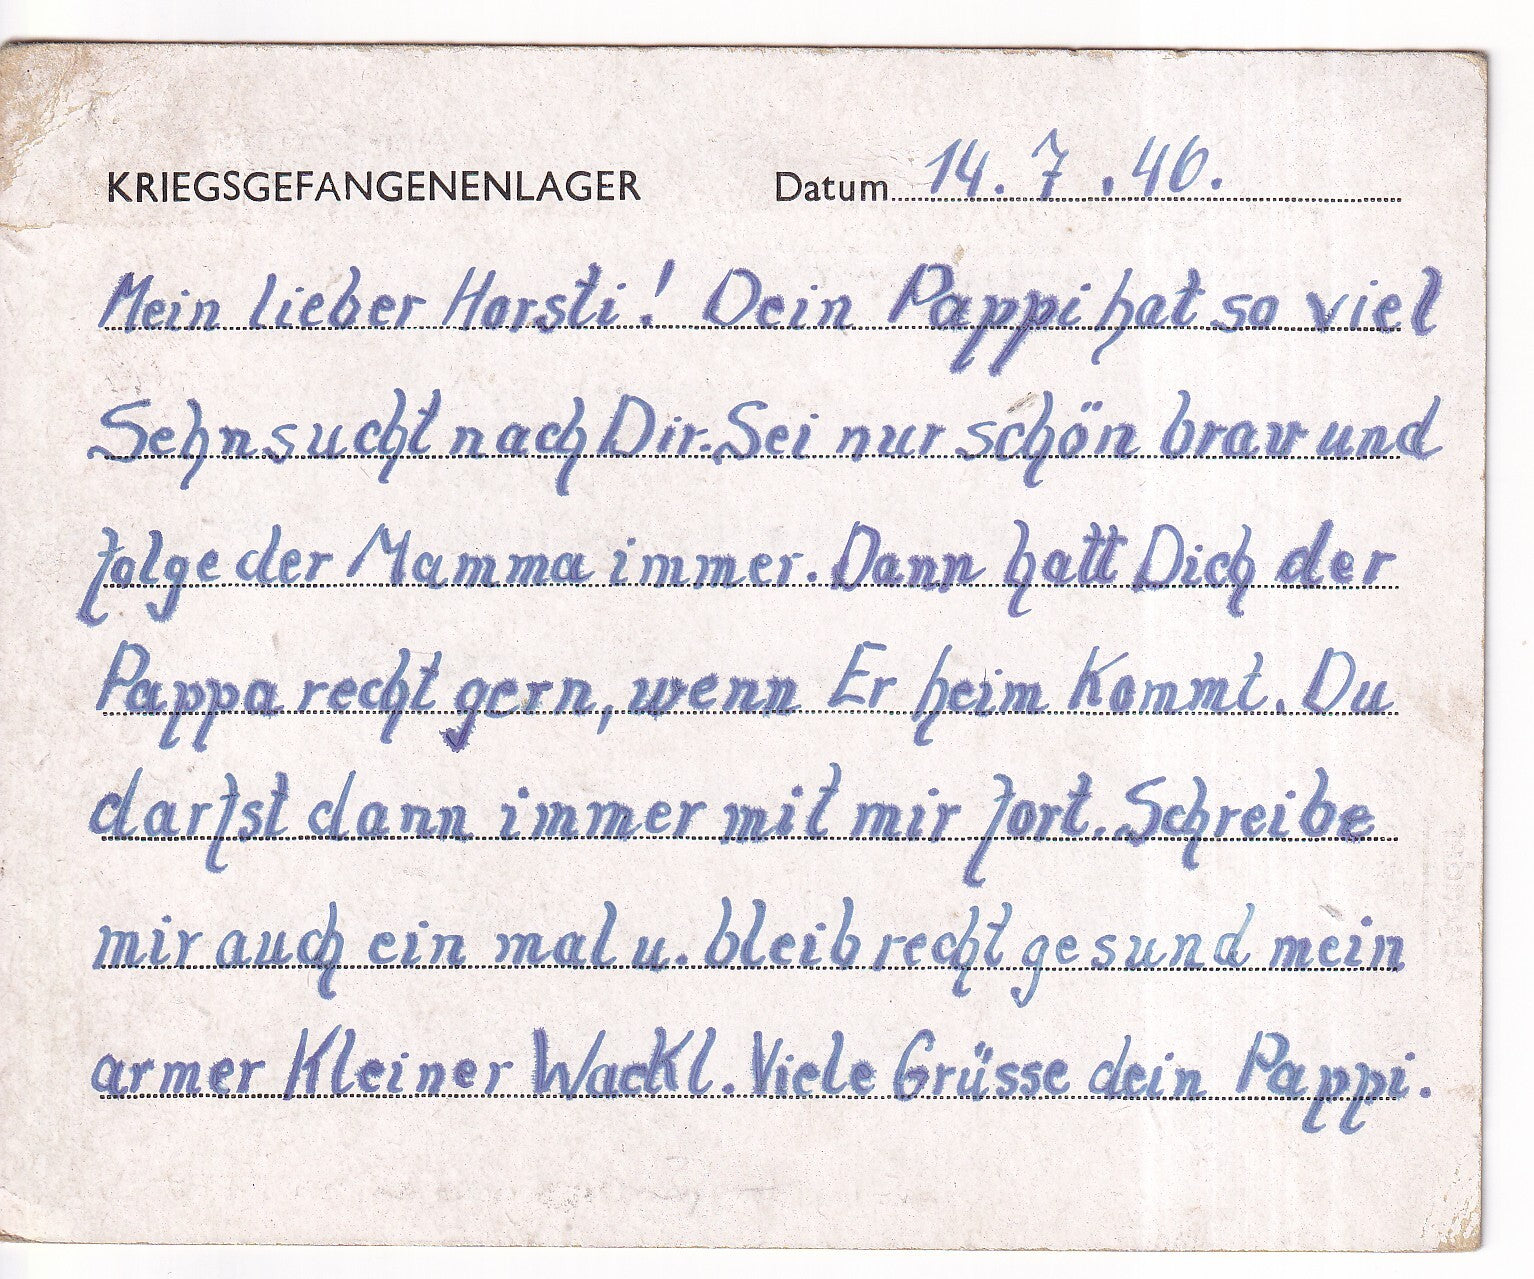 KRIEGSGEFANGENENLAGER Datum 14. 7. 46.
Mein lieber Horsti! Dein Pappi hat so viel
Sehnsucht nach Dir. Sei nur schön brav und
folge der Mamma immer. Dann hatt Dich der
Pappa recht gern, wenn Er heim kommt. Du
darfst dann immer mit mir fort. Schreibe
mir auch ein mal u. bleib recht gesund mein
armer kleiner Wackl. Viele Grüsse dein Pappi.